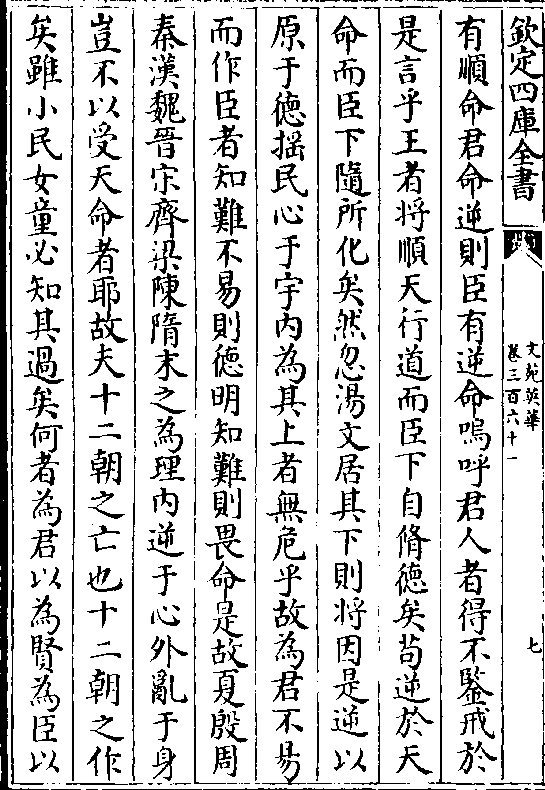 欽定四庫全書
文苑英華
卷三百六十一
七
有順命君命逆則臣有逆命嗚呼君人者得不鑒戒於
是言乎王者將順天行道而臣下自脩德矣苟逆於天
命而臣下隨所化矣然忽湯文居其下則將因是逆以
原于德揺民心于宇内為其上者無危乎故為君不易
而作臣者知難不易則德明知難則畏命是故夏殷周
秦漢魏晉宋齊梁陳隋末之為理内逆于心外亂于身
豈不以受天命者耶故夫十二朝之亡也十二朝之作
矣雖小民女童必知其過矣何者為君以為賢為臣以